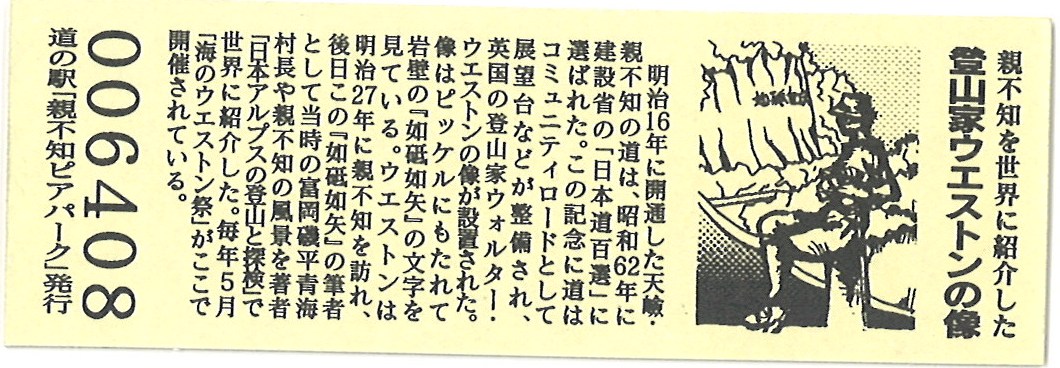 親不知を世界に紹介した
登山家ウエストンの像
明治16年に開通した天嶮・
親不知の道は、昭和62年に
建設省の「日本道百選」に
選ばれた。この記念に道は
コミュニティロードとして
展望台などが整備され、
英国の登山家ウォルター・
ウエストンの像が設置された。
像はピッケルにもたれて
岩壁の『如砥如矢』の文字を
見ている。ウエストンは
明治27年に親不知を訪れ、
後日この『如砥如矢』の筆者
として当時の富岡磯平青海
村長や親不知の風景を著者
「日本アルプスの登山と探検」で
世界に紹介した。毎年5月
「海のウエストン祭」がここで
開催されている。
006408
道の駅「親不知ピアパーク」発行